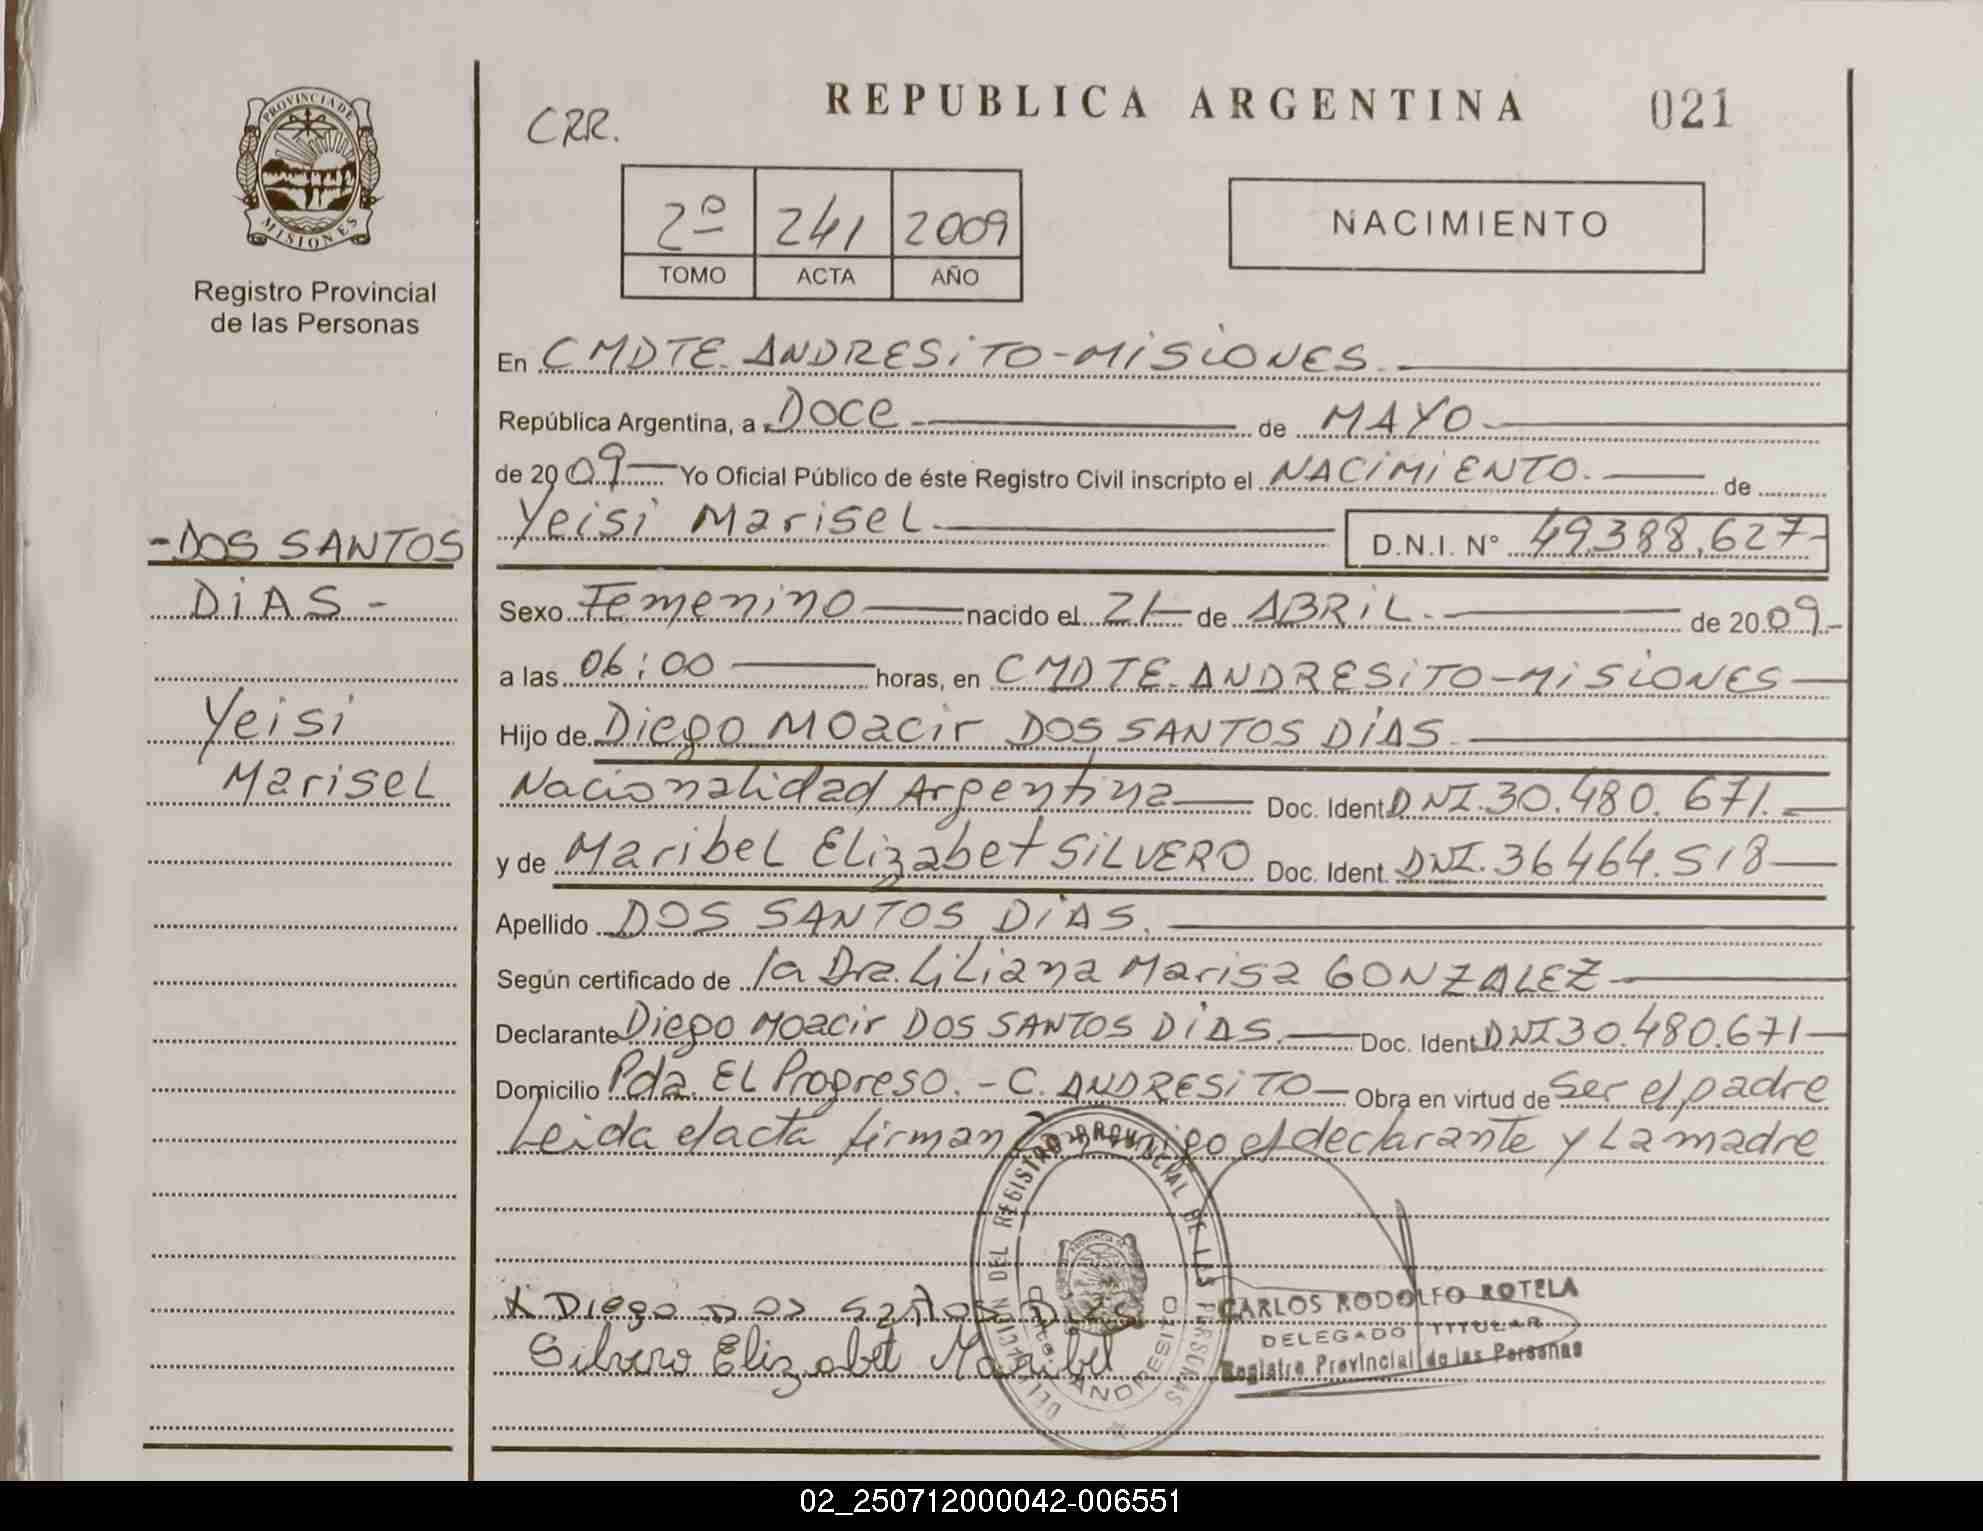 REPUBLICA ARGENTINA
021
CRR.
PROVINCIA DE
MISIONES
Registro Provincial
de las Personas
2º 241 2009
TOMO ACTA AÑO
NACIMIENTO
En CMDTE. ANDRESiTO-MiSiONES.
República Argentina, a DOCE de MAYO
de 2009 Yo Oficial Público de éste Registro Civil inscripto el NACiMiENTO. de
Yeisi Marisel D.N.I. Nº 49.388.627-
-DOS SANTOS
DiAS-
Yeisi
Marisel
Sexo Femenino nacido el 21 de ABRiL. de 2009.-
a las 06:00 horas, en CMDTE. ANDRESiTO-MiSiONES
Hijo de Diego Moacir DOS SANTOS DiAS.
Nacionalidad Argentina Doc. Ident. DNI.30.480.671.
y de Maribel Elizabet SiLVERO Doc. Ident. DNI.36464.518
Apellido DOS SANTOS DiAS.
Según certificado de la Dra. Liliana Marisa GONZALEZ
Declarante Diego Moacir DOS SANTOS DiAS. Doc. Ident. DNI30.480.671
Domicilio Pda. EL Progreso.-C. ANDRESiTO Obra en virtud de Ser el padre
Leida el acta firman conmigo el declarante y La madre
DELEGACION DEL REGISTRO PROVINCIAL DE LAS PERSONAS
ANDRESITO
x Diego Dos Santos Dias
Silvero Elizabet Maribel
CARLOS RODOLFO ROTELA
DELEGADO TITULAR
Registro Provincial de las Personas
02_250712000042-006551